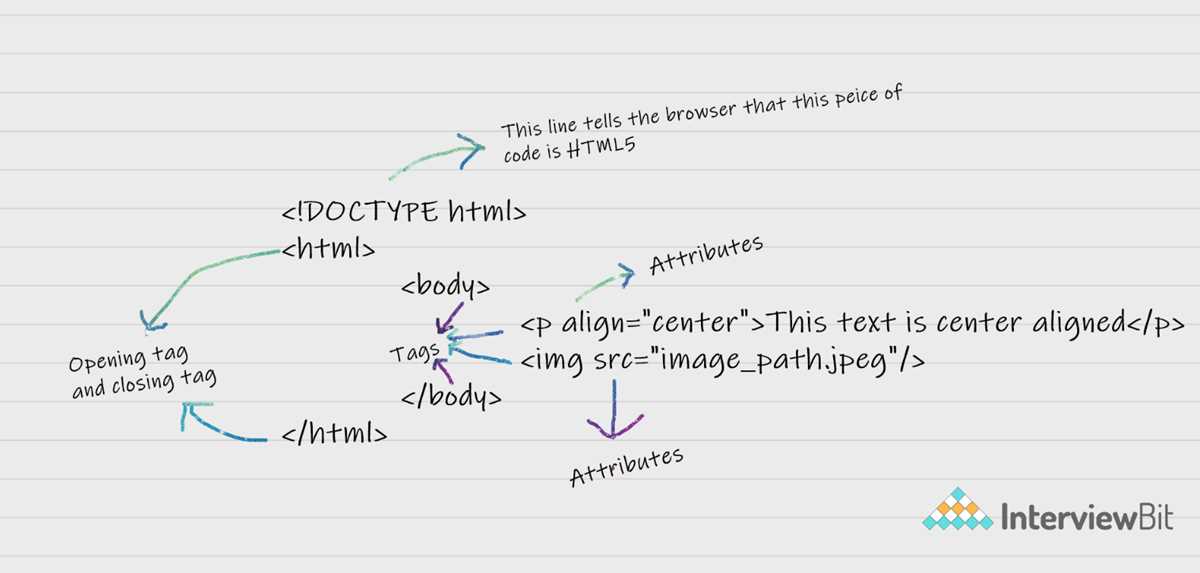 This line tells the browser that this peice of
code is HTML5
<!DOCTYPE html>
<html>
Attributes
<body>
<p align="center">This text is center aligned</p>
Tags
<img src="image_path.jpeg"/>
Opening tag
and closing tag
</body>
</html>
Attributes
InterviewBit